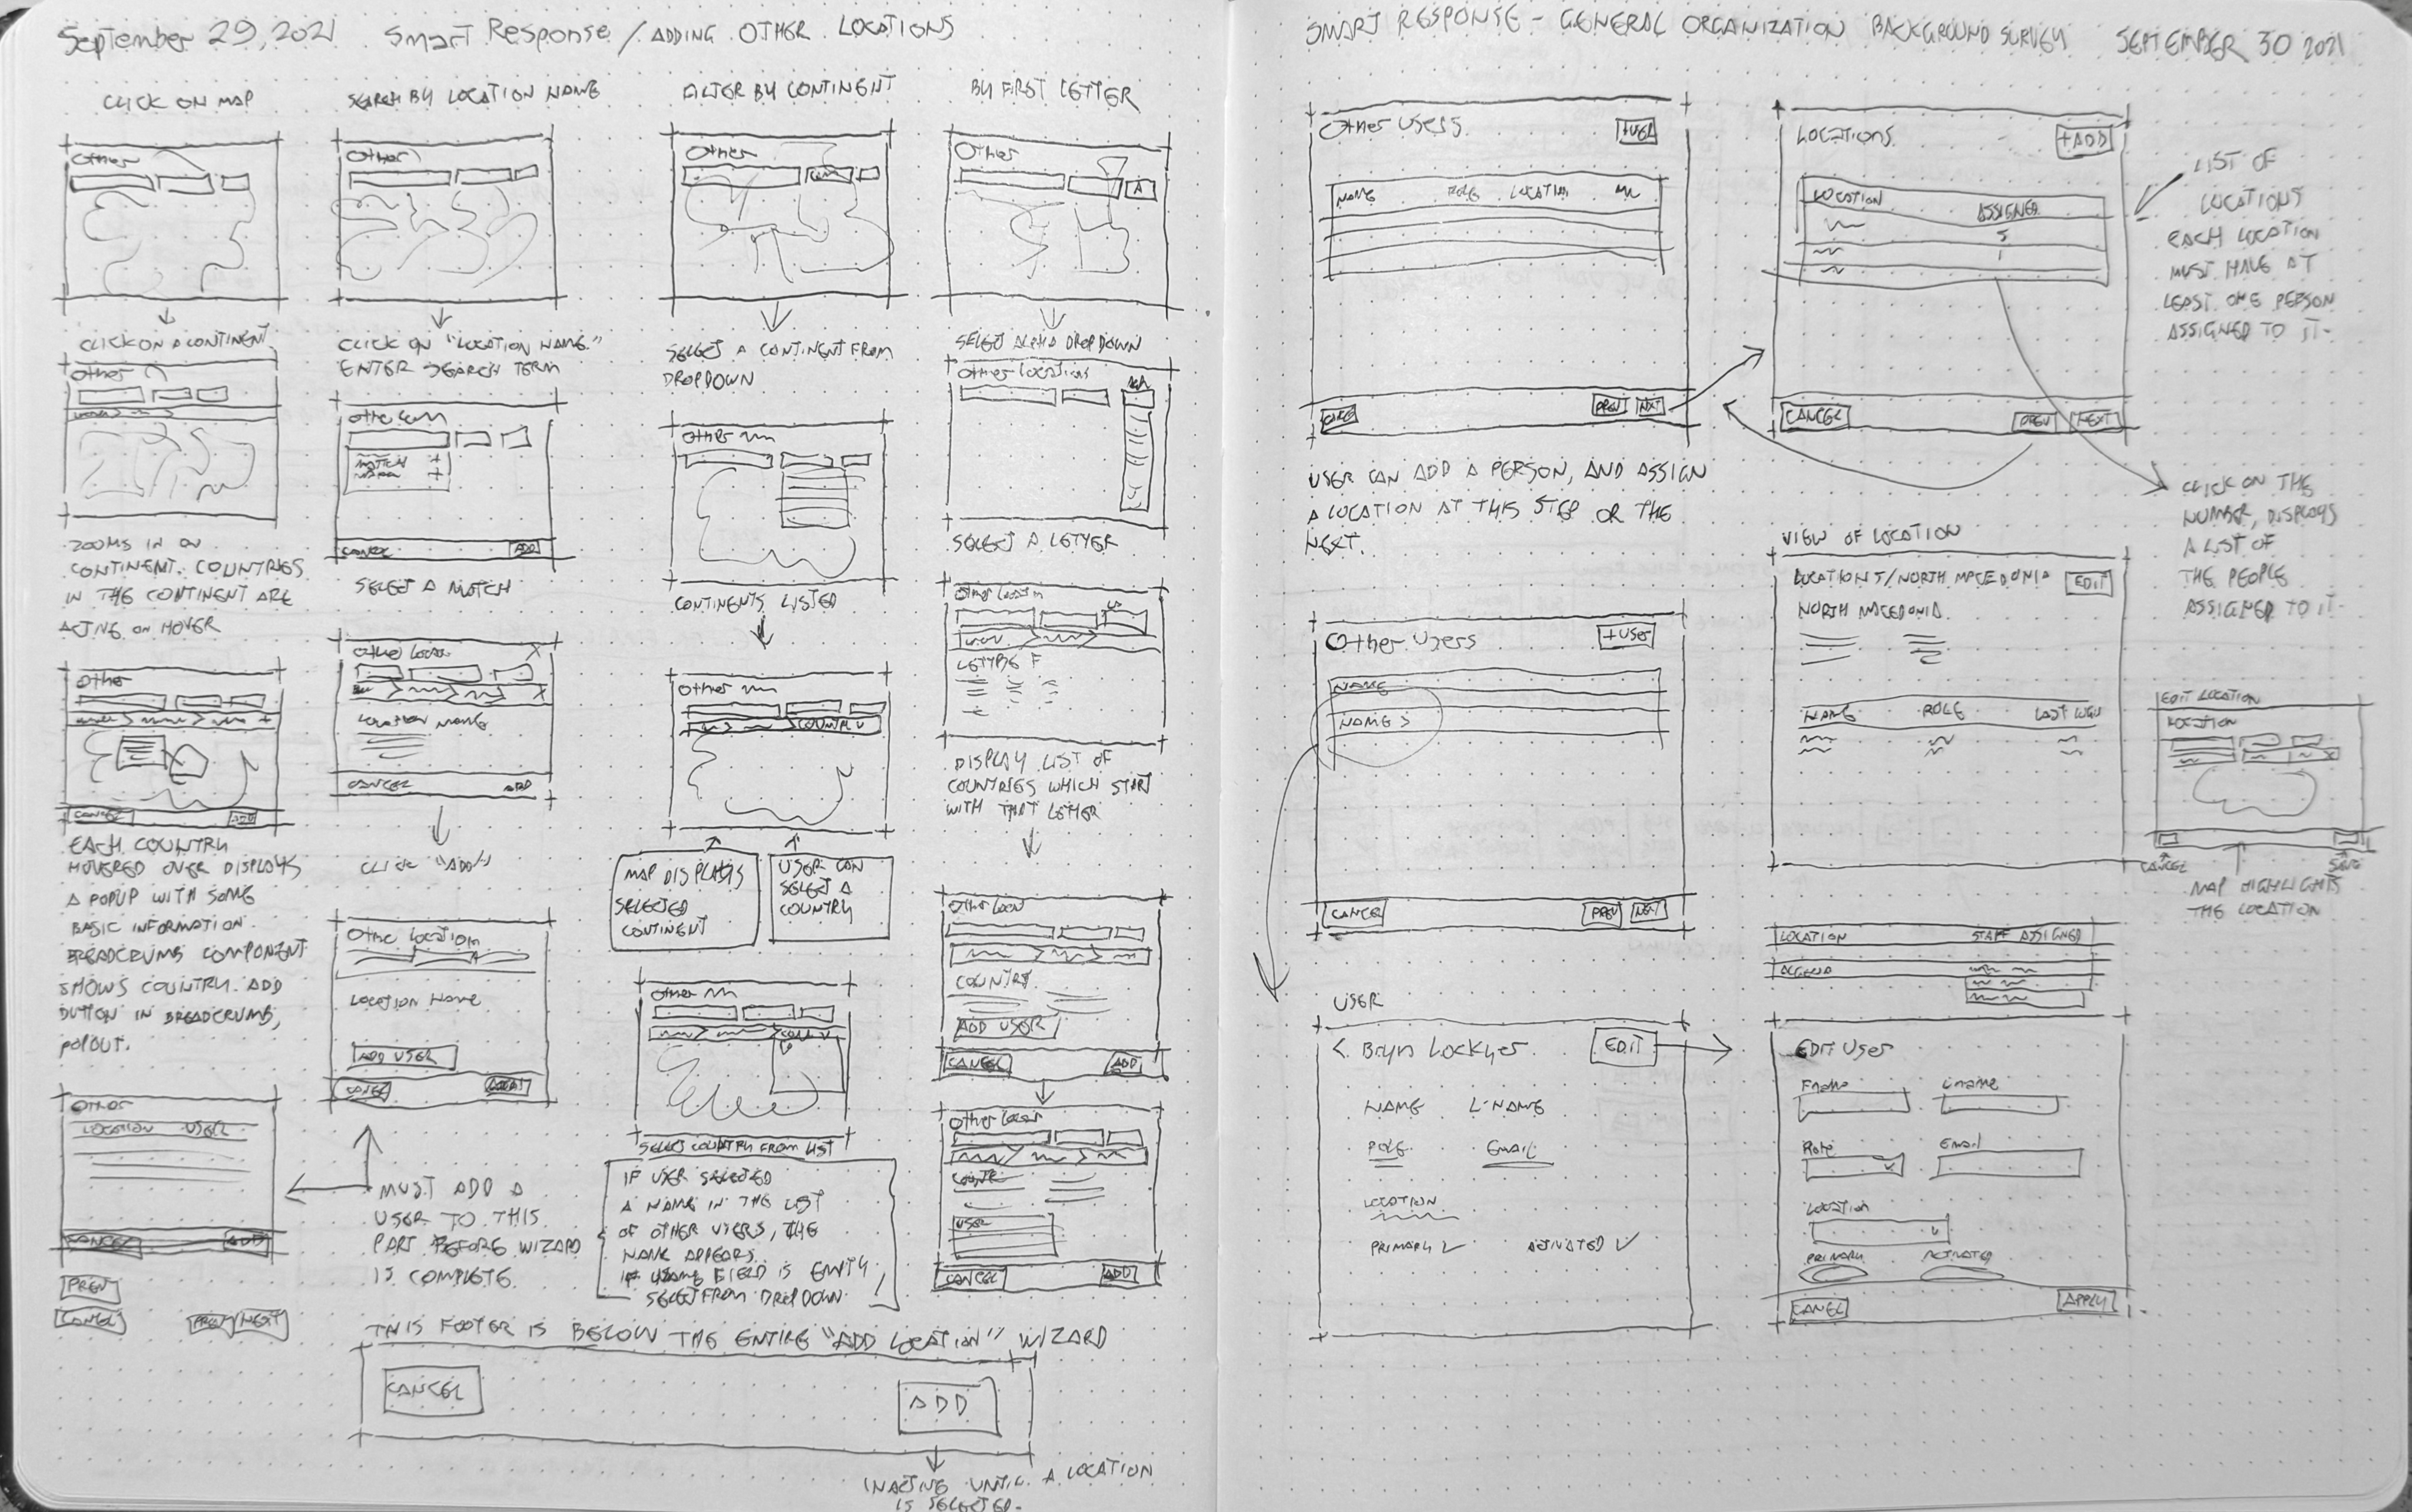 September 29, 2021 Smart Response / ADDING OTHER LOCATIONS
CLICK ON MAP
Other
CLICK ON A CONTINENT.
Other
ZOOMS IN ON
CONTINENT. COUNTRIES
IN THE CONTINENT ARE
ACTIVE ON HOVER
Other
CANCEL ADD
EACH COUNTRY
HOVERED OVER DISPLAYS
A POPUP WITH SOME
BASIC INFORMATION.
BREADCRUMBS COMPONENT
SHOWS COUNTRY. ADD
BUTTON IN BREADCRUMB,
POPOUT.
OTHER
LOCATION USER
CANCEL ADD
PREV
CANCEL PREV NEXT
SEARCH BY LOCATION NAME
Other
CLICK ON "LOCATION NAME."
ENTER SEARCH TERM
Other
MATCH +
+
CANCEL ADD
SELECT A MATCH
Other Locati X
X
LOCATION NAME
CANCEL ADD
CLICK "ADD"
Other Location
Location Name
ADD USER
CANCEL
MUST ADD A
USER TO THIS
PART BEFORE WIZARD
IS COMPLETE.
FILTER BY CONTINENT
Other
SELECT A CONTINENT FROM
DROPDOWN
Other
CONTINENTS LISTED
Other
COUNTRY V
MAP DISPLAYS
SELECTED
CONTINENT
USER CAN
SELECT A
COUNTRY
Other
SELECT COUNTRY FROM LIST
IF USER SELECTED
A NAME IN THE LIST
OF OTHER USERS, THE
NAME APPEARS.
IF NAME FIELD IS EMPTY
SELECT FROM DROPDOWN
BY FIRST LETTER
Other
A
SELECT ALPHA DROPDOWN
Other Locations
SELECT A LETTER
Other Locatin
LETTER F
DISPLAY LIST OF
COUNTRIES WHICH START
WITH THAT LETTER
Other Locn
COUNTRY
ADD USER
CANCEL ADD
Other Locn
USER
CANCEL ADD
THIS FOOTER IS BELOW THE ENTIRE "ADD LOCATION" WIZARD
CANCEL ADD
INACTIVE UNTIL A LOCATION
IS SELECTED.
SMART RESPONSE - GENERAL ORGANIZATION BACKGROUND SURVEY SEPTEMBER 30 2021
Other Users +USER
NAME ROLE LOCATION
CANCEL PREV NEXT
USER CAN ADD A PERSON, AND ASSIGN
A LOCATION AT THIS STEP OR THE
NEXT.
Other Users +USER
NAME
NAME S
CANCEL PREV NEXT
USER
< Bryn Lockyer EDIT
NAME L-NAME
ROLE EMAIL
LOCATION
PRIMARY ✓ ACTIVATED ✓
LOCATIONS +ADD
LOCATION ASSIGNED
5
1
CANCEL PREV NEXT
LIST OF
LOCATIONS
EACH LOCATION
MUST HAVE AT
LEAST ONE PERSON
ASSIGNED TO IT.
CLICK ON THE
NUMBER, DISPLAYS
A LIST OF
THE PEOPLE
ASSIGNED TO IT.
VIEW OF LOCATION
LOCATIONS/NORTH MACEDONIA EDIT
NORTH MACEDONIA
NAME ROLE LAST LOGIN
EDIT LOCATION
LOCATION
CANCEL SAVE
MAP HIGHLIGHTS
THE LOCATION
LOCATION STAFF ASSIGNED
EDIT User
Fname Lname
Role Email
Location
PRIMARY ACTIVATED
CANCEL APPLY